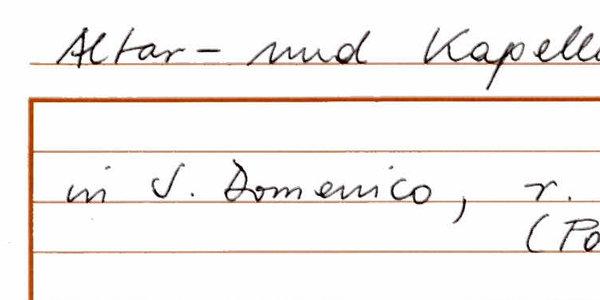 Altar- und Kapelle
in S. Domenico, r.
(Po